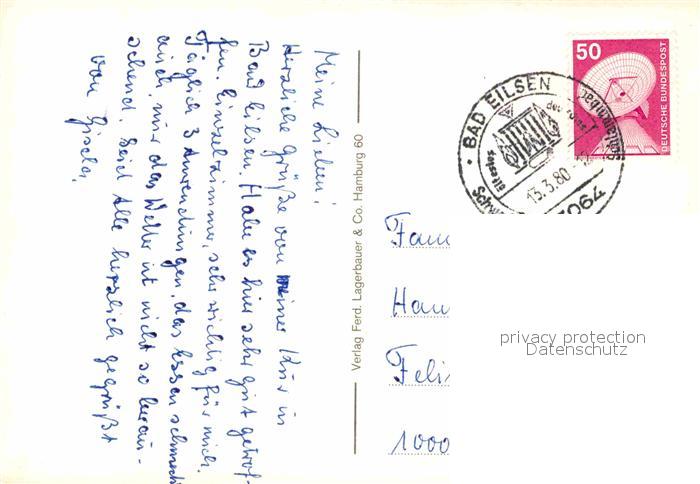 Meine Lieben!
Herzliche Grüße von meiner Kur in
Bad Eilsen. Habe es hier sehr gut getrof-
fen. Einzelzimmer, sehr wichtig für mich.
Täglich 3 Anwendungen, das Essen schmeckt
auch, nur das Wetter ist nicht so berau-
schend. Seid Alle herzlich gegrüßt
von Gisela.
Verlag Ferd. Lagerbauer & Co. Hamburg 60
50
DEUTSCHE BUNDESPOST
BAD EILSEN
ältestes
Schlammbad
13.3.80
Fam
Han
Feli
1000
privacy protection
Datenschutz